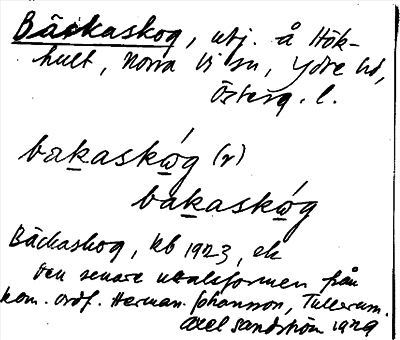 Bäckaskog, utj. å Hök-
hult, Norra Vi sn, Ydre hd,
Österg. l.
bakaskωg (r)
bakaskωg
Bäckaskog, kb 1923, ek
Den senare uttalsformen från
kom. ordf. Herman Johansson, Tullerum.
Axel Sandström 1929